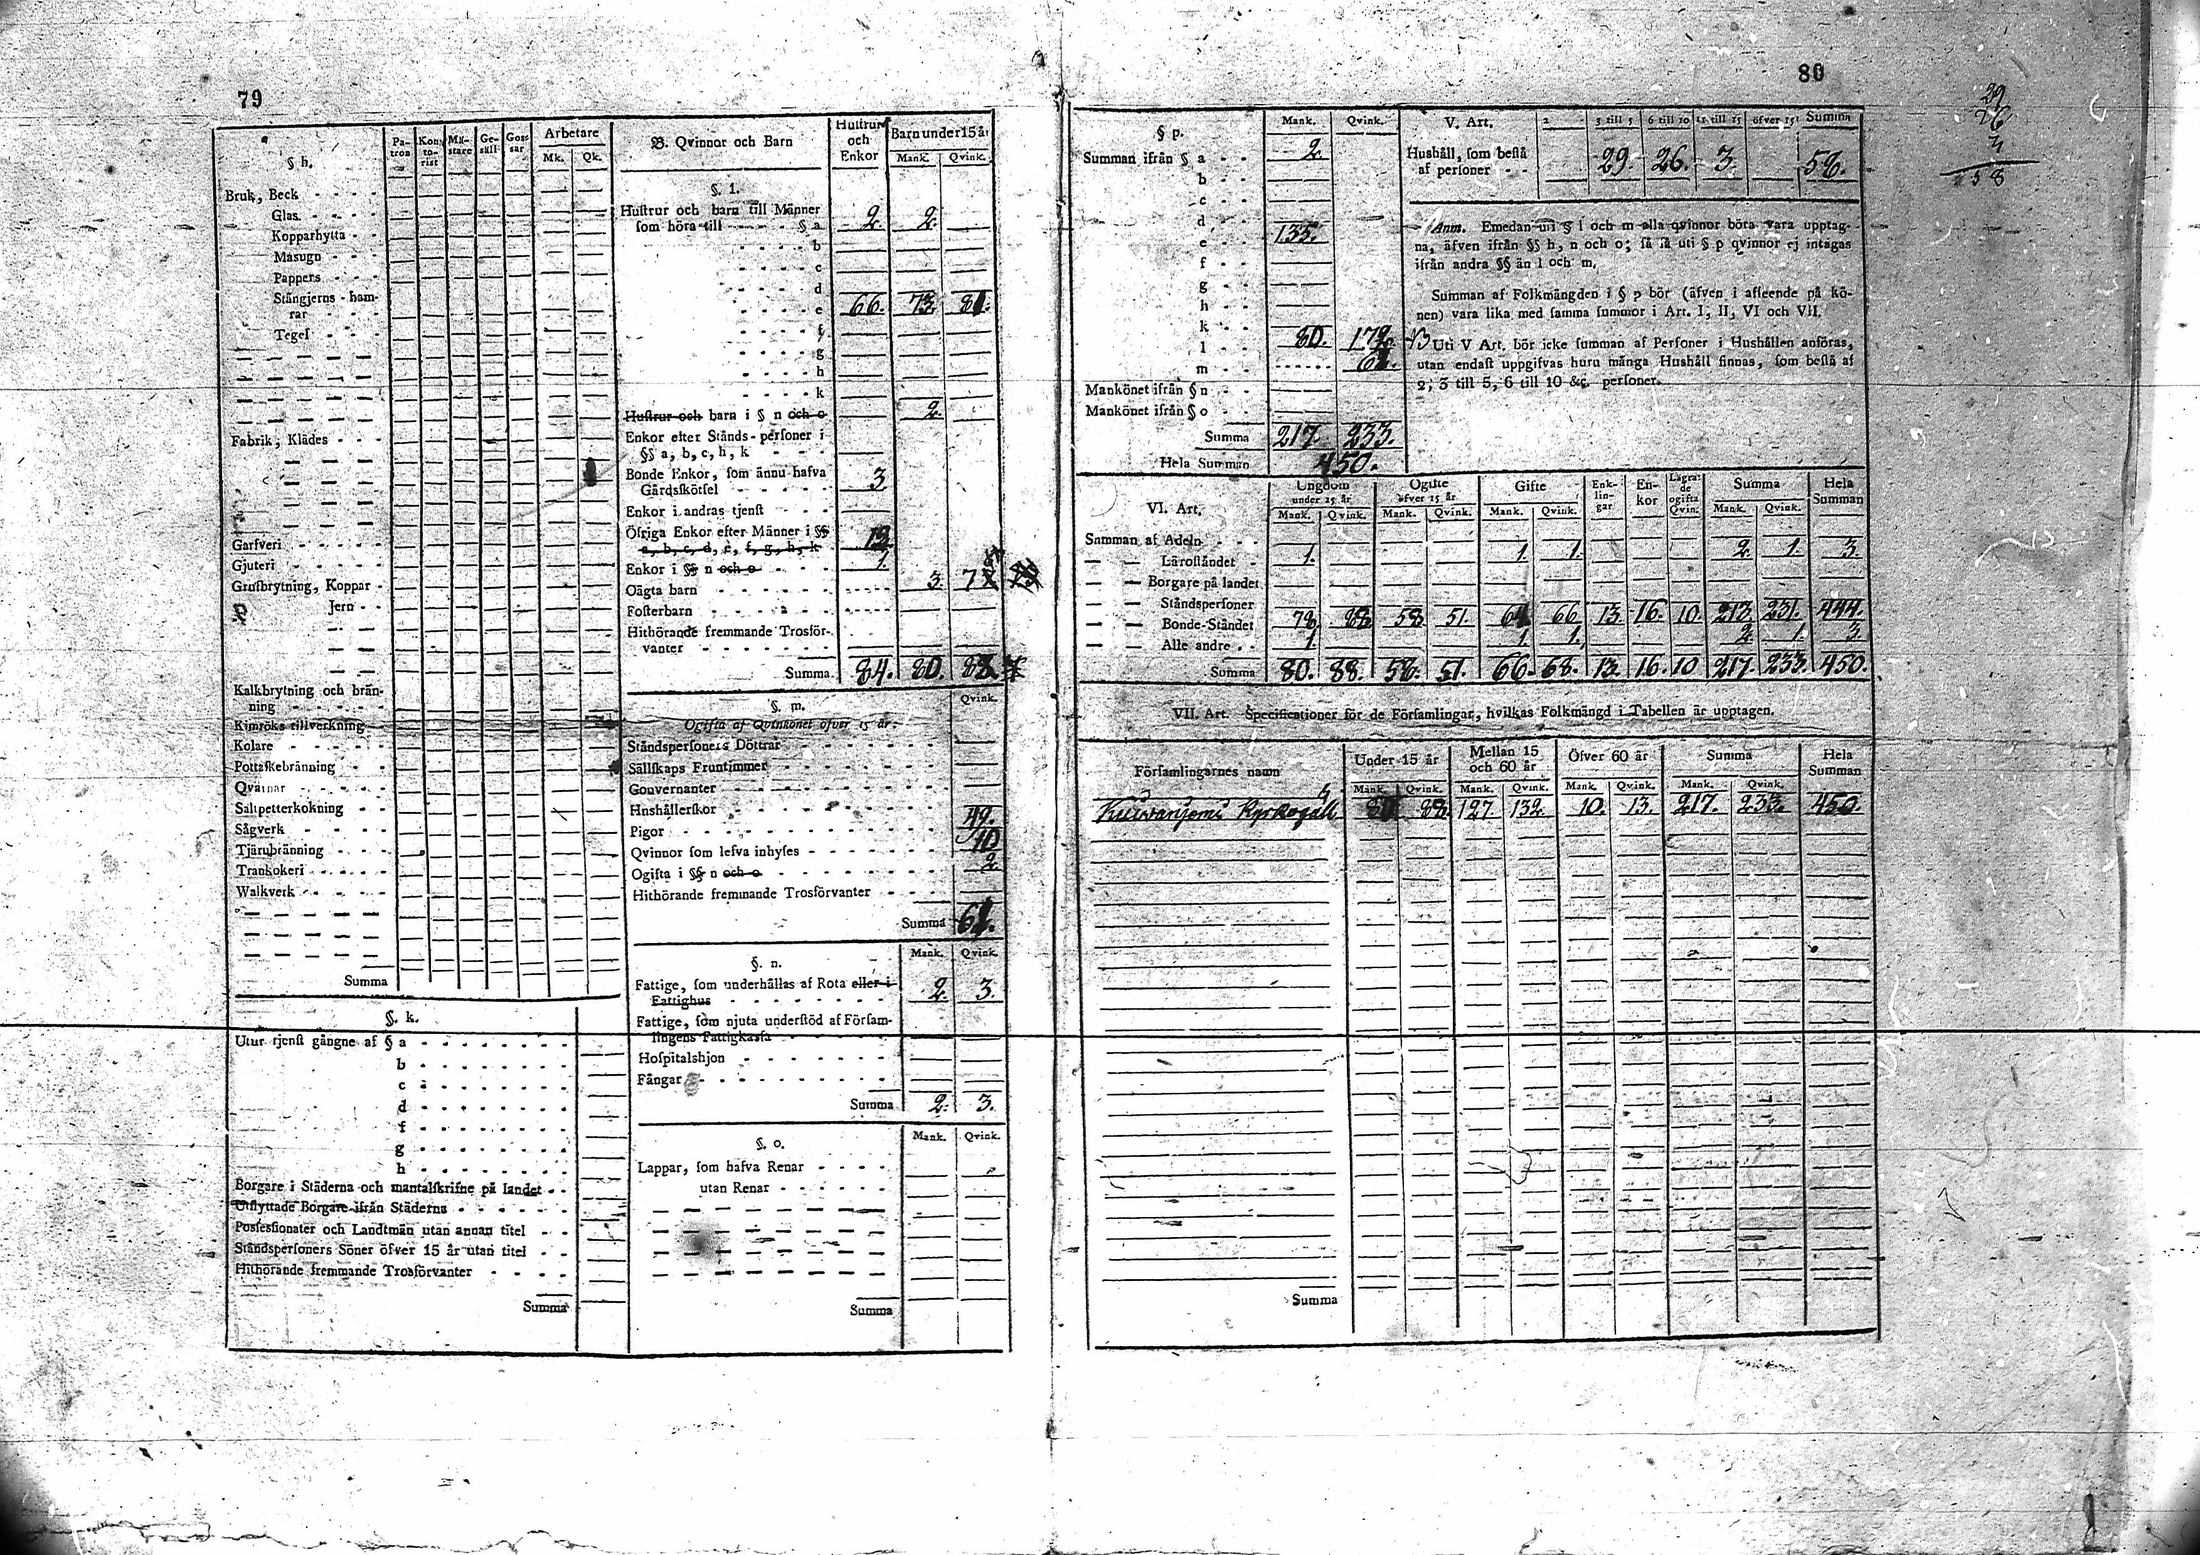 79
§ h.
Pa-tron Kon-to-rist Mä-stare Ge-säll Gos-sar Arbetare
Mk. Qk.
Bruk, Beck
Glas
Kopparhytta
Masugn
Pappers
Stångjerns-ham-
rar
Tegel
Fabrik, Klädes
Garfveri
Gjuteri
Grufbrytning, Koppar
Jern
Kalkbrytning och brän-
ning
Kimröks tillverkning
Kolare
Pottaskebränning
Qvarnar
Saltpetterkokning
Sågverk
Tjärubränning
Trankokeri
Walkverk
Summa
§. k.
Utur tjenst gångne af § a
b
c
d
f
g
h
Borgare i Städerna och mantalskrifne på landet
Utflyttade Borgare ifrån Städerna
Possessionater och Landtmän utan annan titel
Ståndspersoners Söner öfver 15 år utan titel
Hithörande fremmande Trosförvanter
Summa
B. Qvinnor och Barn Hustrur och Enkor Barn under 15 år
Mank. Qvink.
§. l.
Hustrur och barn till Männer
som höra till § a 2. 2.
b
c
d
e 66. 73. 81.
f
g
h
k
Hustrur och barn i § n och o 2.
Enkor efter Stånds-personer i
§§ a, b, c, h, k
Bonde Enkor, som ännu hafva
Gårdsskötsel 3.
Enkor i andras tjenst
Öfriga Enkor efter Männer i §§
a, b, c, d, e, f, g, h, k 12
Enkor i §§ n och o 1.
Oägta barn 3.
Fosterbarn
Hithörande fremmande Trosför-
vanter
Summa 84. 80.
§. m. Qvink.
Ogifta af Qvinkönet öfver 15 år.
Ståndspersoners Döttrar
Sällskaps Fruntimmer
Gouvernanter
Hushållerskor
Pigor 49.
Qvinnor som lefva inhyses 10
Ogifta i §§ n och o 2.
Hithörande fremmande Trosförvanter
Summa 61.
§. n. Mank. Qvink.
Fattige, som underhållas af Rota eller i
Fattighus 2. 3.
Fattige, som njuta understöd af Försam-
lingens Fattigkassa
Hospitalshjon
Fångar
Summa 2. 3.
§. o. Mank. Qvink.
Lappar, som hafva Renar
utan Renar
Summa
80
§ p. Mank. Qvink.
Summan ifrån § a 2.
b
c
d
e 135.
f
g
h
k
l 80. 172.
m 61.
Mankönet ifrån § n
Mankönet ifrån § o
Summa 217. 233.
Hela Summan 450.
V. Art. 2 3 till 5 6 till 10 11 till 15 öfver 15 Summa
Hushåll, som bestå
af personer 29. 26. 3. 58.
29
26
3
58
Anm. Emedan uti § l och m alla qvinnor böra vara upptag-
na, äfven ifrån §§ h, n och o; så så uti § p qvinnor ej intagas
ifrån andra §§ än l och m.
Summan af Folkmängden i § p bör (äfven i afseende på kö-
nen) vara lika med samma summor i Art. I, II, VI och VII.
NB Uti V Art. bör icke summan af Personer i Hushållen anföras,
utan endast uppgifvas huru många Hushåll finnas, som bestå af
2, 3 till 5, 6 till 10 &c. personer.
VI. Art. Ungdom under 15 år Ogifte öfver 15 år Gifte Enk-lin-gar En-kor Lägra-de ogifta Qvin. Summa Hela Summan
Mank. Qvink. Mank. Qvink. Mank. Qvink. Mank. Qvink.
Summan af Adeln
Läroståndet 1. 1. 1. 2. 1. 3.
Borgare på landet
Ståndspersoner
Bonde-Ståndet 78. 88 58. 51. 64 66 13. 16. 10. 213. 231. 444.
Alle andre 1. 1. 1. 2. 1. 3.
Summa 80. 88. 58. 51. 66. 68. 13. 16. 10 217. 233. 450.
VII. Art. Specificationer för de Församlingar, hvilkas Folkmängd i Tabellen är upptagen.
Församlingarnes namn Under 15 år Mellan 15 och 60 år Öfver 60 år Summa Hela Summan
Mank. Qvink. Mank. Qvink. Mank. Qvink. Mank. Qvink.
80 88. 127. 132. 10. 13. 217. 233. 450.
Summa